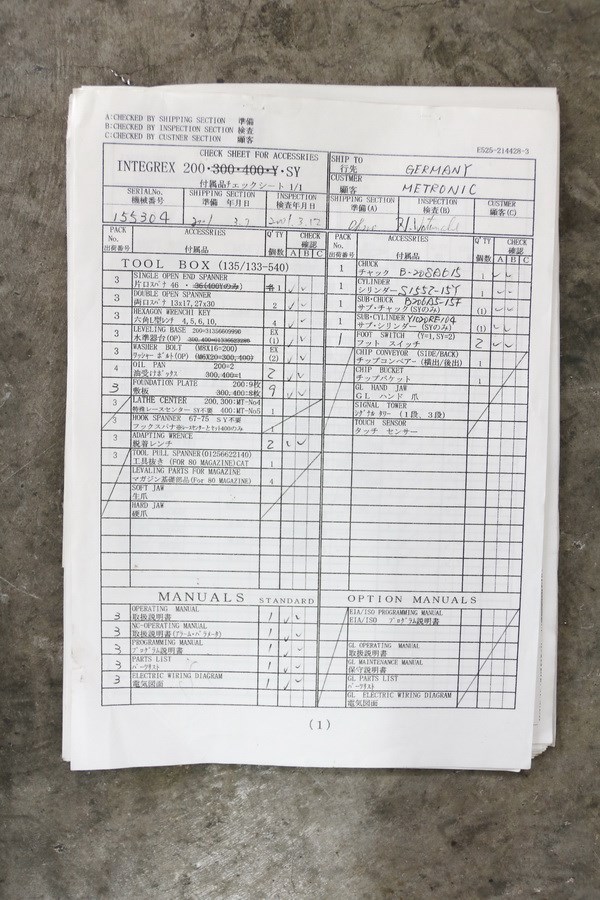 A:CHECKED BY SHIPPING SECTION 準備
B:CHECKED BY INSPECTION SECTION 検査
C:CHECKED BY CUSTNER SECTION 顧客
E525-214428-3
CHECK SHEET FOR ACCESSRIES
INTEGREX 200·300·400·Y·SY
付属品チェックシート 1/1
SHIP TO
行先 GERMANY
CUSTMER
顧客 METRONIC
SERIALNo.
機械番号
155304
SHIPPING SECTION
準備 年月日
INSPECTION
検査年月日
2001
SHIPPING SECTION
準備(A)
INSPECTION
検査(B)
CUSTMER
顧客(C)
PACK No.
出荷番号
ACCESSRIES
付属品
Q'TY
個数
CHECK
確認
A B C
TOOL BOX (135/133-540)
3 SINGLE OPEN END SPANNER
片口スパナ 46 · 36(400Yのみ) 1
3 DOUBLE OPEN SPANNER
両口スパナ 13x17,27x30 2
3 HEXAGON WRENCHI KEY
六角L型レンチ 4,5,6,10, 4
3 LEVELING BASE 200=31306609990 EX
水準器台(OP) 300,400= (1)
3 WASHER BOLT (M8X16=200) EX
ワッシャー ボルト(OP) (M6X20=300,400) (2)
4 OIL PAN 200=2
油受けボックス 300,400=1 2
3 FOUNDATION PLATE 200:9枚
敷板 300,400:8枚 9
3 LATHE CENTER 200,300:MT-No4
特殊レースセンター SY不要 400:MT-No5 1
3 HOOK SPANNER 67-75 SY不要
フックスパナ※レースセンターとセット400のみ 1
3 ADAPTING WRENCE
脱着レンチ 2
3 TOOL PULL SPANNER(01256622140)
工具抜き (FOR 80 MAGAZINE)CAT 1
LEVALING PARTS FOR MAGAZINE
マガジン基礎部品(For 80 MAGAZINE) 4
SOFT JAW
生爪
HARD JAW
硬爪
PACK No.
出荷番号
ACCESSRIES
付属品
Q'TY
個数
CHECK
確認
A B C
1 CHUCK
チャック 1
1 CYLINDER
シリンダー S1552-15Y 1
1 SUB-CHUCK
サブ・チャック(SYのみ) (1)
1 SUB-CYLINDER Y1020RE104
サブ・シリンダー (SYのみ) (1)
1 FOOT SWITCH (Y=1, SY=2)
フット スイッチ 2
CHIP CONVEYOR (SIDE/BACK)
チップコンベアー(横出/後出) 1
CHIP BUCKET
チップバケット 1
GL HAND JAW
GL ハンド 爪
SIGNAL TOWER
シグナル タワー (1段, 3段)
TOUCH SENSOR
タッチ センサー
MANUALS STANDARD
3 OPERATING MANUAL
取扱説明書 1
3 NC-OPERATING MANUAL
取扱説明書(アラーム・パラメータ) 1
3 PROGRAMMING MANUAL
プログラム説明書 1
3 PARTS LIST
パーツリスト 1
3 ELECTRIC WIRING DIAGRAM
電気図面 1
OPTION MANUALS
EIA/ISO PROGRAMMING MANUAL
EIA/ISO プログラム説明書
GL OPERATING MANUAL
取扱説明書
GL MAINTENANCE MANUAL
保守説明書
GL PARTS LIST
パーツリスト
GL ELECTRIC WIRING DIAGRAM
電気図面
(1)